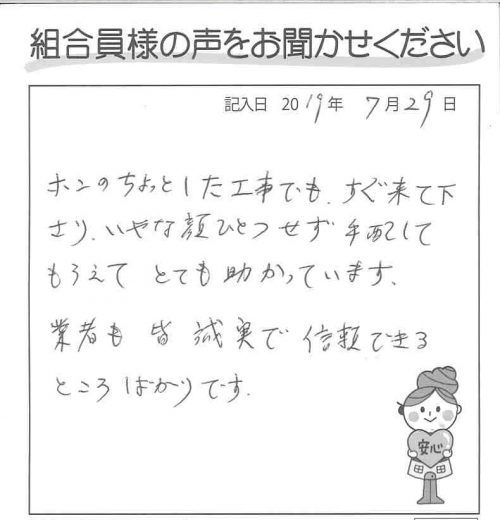 組合員様の声をお聞かせください
記入日 2019年 7月29日
ホンのちょっとした工事でも、すぐ来て下
さり、いやな顔ひとつせず手配して
もらえて とても助かっています。
業者も 皆 誠実で 信頼できる
ところばかりです。
安心